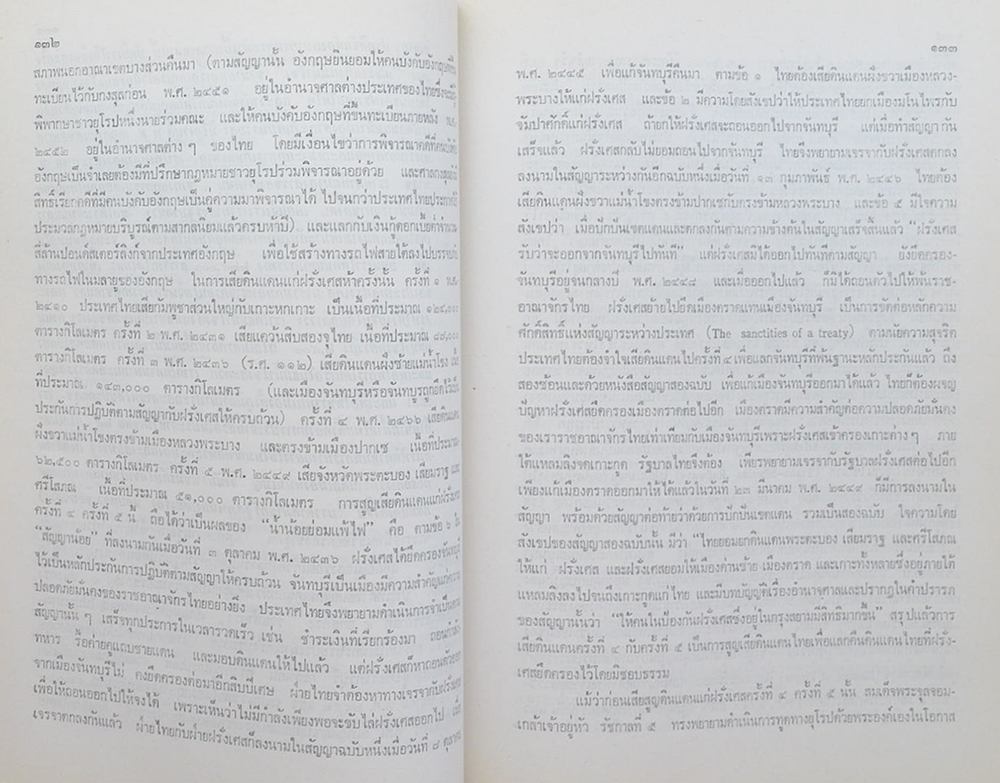 ๑๓๒
สภาพนอกอาณาเขตบางส่วนคืนมา (ตามสัญญานั้น อังกฤษยินยอมให้คนบังคับอังกฤษ
ทะเบียนไว้กับกงสุลก่อน พ.ศ. ๒๔๕๑ อยู่ในอำนาจศาลต่างประเทศของไทย
พิพากษาชาวยุโรปหนึ่งนายร่วมคณะ และให้คนบังคับอังกฤษที่ขึ้นทะเบียนภายหลัง พ.ศ.
๒๔๕๒ อยู่ในอำนาจศาลต่าง ๆ ของไทย โดยมีเงื่อนไขว่าการพิจารณาคดีที่คนบังคับ
อังกฤษเป็นจำเลยต้องมีที่ปรึกษากฎหมายชาวยุโรปร่วมพิจารณาอยู่ด้วย และศาลกงสุล
สิทธิ์เรียกคดีที่มีคนบังคับอังกฤษเป็นคู่ความมาพิจารณาได้ ไปจนกว่าประเทศไทยประกาศใช้
ประมวลกฎหมายบริบูรณ์ตามสากลนิยมแล้วครบห้าปี) และแลกกับเงินกู้ดอกเบี้ยต่ำจำนวน
สี่ล้านปอนด์สเตอร์ลิงก์จากประเทศอังกฤษ เพื่อใช้สร้างทางรถไฟสายใต้ลงไปบรรจบกับ
ทางรถไฟในมลายูของอังกฤษ ในการเสียดินแดนแก่ฝรั่งเศสห้าครั้งนั้น ครั้งที่ ๑ พ.ศ.
๒๔๑๐ ประเทศไทยเสียกัมพูชาส่วนใหญ่กับเกาะหกเกาะ เป็นเนื้อที่ประมาณ ๑๒๔,๐๐๐
ตารางกิโลเมตร ครั้งที่ ๒ พ.ศ. ๒๔๓๑ เสียแคว้นสิบสองจุไทย เนื้อที่ประมาณ ๘๗,๐๐๐
ตารางกิโลเมตร ครั้งที่ ๓ พ.ศ. ๒๔๓๖ (ร.ศ. ๑๑๒) เสียดินแดนฝั่งซ้ายแม่น้ำโขง เนื้อ
ที่ประมาณ ๑๔๓,๐๐๐ ตารางกิโลเมตร (และเมืองจันทบุรีหรือจันทบูรถูกยึดไว้เป็น
ประกันการปฏิบัติตามสัญญากับฝรั่งเศสให้ครบถ้วน) ครั้งที่ ๔ พ.ศ. ๒๔๖๖ เสียดินแดน
ฝั่งขวาแม่น้ำโขงตรงข้ามเมืองหลวงพระบาง และตรงข้ามเมืองปากเซ เนื้อที่ประมาณ
๖๒,๕๐๐ ตารางกิโลเมตร ครั้งที่ ๕ พ.ศ. ๒๔๔๙ เสียจังหวัดพระตะบอง เสียมราฐ และ
ศรีโสภณ เนื้อที่ประมาณ ๕๑,๐๐๐ ตารางกิโลเมตร การสูญเสียดินแดนแก่ฝรั่งเศส
ครั้งที่ ๔ ครั้งที่ ๕ นี้ ถือได้ว่าเป็นผลของ “น้ำน้อยย่อมแพ้ไฟ” คือ ตามข้อ ๖ ใน
“สัญญาน้อย” ที่ลงนามกันเมื่อวันที่ ๓ ตุลาคม พ.ศ. ๒๔๓๖ ฝรั่งเศสได้ยึดครองจันทบุรี
ไว้เป็นหลักประกันการปฏิบัติตามสัญญาให้ครบถ้วน จันทบุรีเป็นเมืองมีความสำคัญแก่ความ
ปลอดภัยมั่นคงของราชอาณาจักรไทยอย่างยิ่ง ประเทศไทยจึงพยายามดำเนินการจำเป็นตาม
สัญญานั้น ๆ เสร็จทุกประการในเวลารวดเร็ว เช่น ชำระเงินที่เรียกร้องมา ถอนกำลัง
ทหาร รื้อค่ายคูแถบชายแดน และมอบดินแดนให้ไปแล้ว แต่ฝรั่งเศสก็หาถอนตัวออก
จากเมืองจันทบุรีไม่ คงยึดครองต่อมาอีกสิบปีเศษ ฝ่ายไทยจำต้องหาทางเจรจากับฝรั่งเศส
เพื่อให้ถอนออกไปให้จงได้ เพราะเห็นว่าไม่มีกำลังเพียงพอจะขับไล่ฝรั่งเศสออกไป
เจรจาตกลงกันแล้ว ฝ่ายไทยกับฝ่ายฝรั่งเศสก็ลงนามในสัญญาฉบับหนึ่งเมื่อวันที่ ๗ ตุลาคม
๑๓๓
พ.ศ. ๒๔๔๕ เพื่อแก้จันทบุรีคืนมา ตามข้อ ๑ ไทยต้องเสียดินแดนฝั่งขวาเมืองหลวง-
พระบางให้แก่ฝรั่งเศส และข้อ ๒ มีความโดยสังเขปว่าให้ประเทศไทยยกเมืองมโนไพรกับ
จัมปาศักดิ์แก่ฝรั่งเศส ถ้ายกให้ฝรั่งเศสจะถอนออกไปจากจันทบุรี แต่เมื่อทำสัญญากัน
เสร็จแล้ว ฝรั่งเศสกลับไม่ยอมถอนไปจากจันทบุรี ไทยจึงพยายามเจรจากับฝรั่งเศสตกลง
ลงนามในสัญญาระหว่างกันอีกฉบับหนึ่งเมื่อวันที่ ๑๓ กุมภาพันธ์ พ.ศ. ๒๔๔๖ ไทยต้อง
เสียดินแดนฝั่งขวาแม่น้ำโขงตรงข้ามปากเซกับตรงข้ามหลวงพระบาง และข้อ ๕ มีใจความ
สังเขปว่า เมื่อปักปันเขตแดนและตกลงกันตามความข้างต้นในสัญญาเสร็จสิ้นแล้ว “ฝรั่งเศส
รับว่าจะออกจากจันทบุรีไปทันที” แต่ฝรั่งเศสมิได้ออกไปทันทีตามสัญญา ยังยึดครอง-
จันทบุรีอยู่จนกลางปี พ.ศ. ๒๔๔๘ และเมื่อออกไปแล้ว ก็มิได้ถอนตัวไปให้พ้นราช-
อาณาจักรไทย ฝรั่งเศสย้ายไปยึดเมืองตราดแทนเมืองจันทบุรี เป็นการขัดต่อหลักความ
ศักดิ์สิทธิ์แห่งสัญญาระหว่างประเทศ (The sanctities of a treaty) ตามนัยความสุจริต
ประเทศไทยต้องจำใจเสียดินแดนไปครั้งที่ ๔ เพื่อแลกจันทบุรีที่พ้นฐานะหลักประกันแล้ว ถึง
สองซ้อนและด้วยหนังสือสัญญาสองฉบับ เพื่อแก้เมืองจันทบุรีออกมาได้แล้ว ไทยก็ต้องผจญ
ปัญหาฝรั่งเศสยึดครองเมืองตราดต่อไปอีก เมืองตราดมีความสำคัญต่อความปลอดภัยมั่นคง
ของเราราชอาณาจักรไทยเท่าเทียมกับเมืองจันทบุรีเพราะฝรั่งเศสเข้าครองเกาะต่าง ๆ ภาย
ใต้แหลมลิงจดเกาะกูด รัฐบาลไทยจึงต้อง เพียรพยายามเจรจากับรัฐบาลฝรั่งเศสต่อไปอีก
เพียงแก้เมืองตราดออกมาให้ได้แล้วในวันที่ ๒๓ มีนาคม พ.ศ. ๒๔๔๙ ก็มีการลงนามใน
สัญญา พร้อมด้วยสัญญาต่อท้ายว่าด้วยการปักปันเขตแดน รวมเป็นสองฉบับ ใจความโดย
สังเขปของสัญญาสองฉบับนั้น มีว่า “ไทยยอมยกดินแดนพระตะบอง เสียมราฐ และศรีโสภณ
ให้แก่ ฝรั่งเศส และฝรั่งเศสยอมให้เมืองด่านซ้าย เมืองตราด และเกาะทั้งหลายซึ่งอยู่ภายใต้
แหลมลิงลงไปจนถึงเกาะกูดแก่ไทย และมีบทบัญญัติเรื่องอำนาจศาลและปรากฏในคำปรารภ
ของสัญญานั้นว่า “ให้คนในป้องกันฝรั่งเศสซึ่งอยู่ในกรุงสยามมีสิทธิมากขึ้น” สรุปแล้วการ
เสียดินแดนครั้งที่ ๔ กับครั้งที่ ๕ เป็นการสูญเสียดินแดนไทยเพื่อแลกคืนดินแดนไทยที่ฝรั่ง-
เศสยึดครองไว้โดยมิชอบธรรม
แม้ว่าก่อนเสียสูญดินแดนแก่ฝรั่งเศสครั้งที่ ๔ ครั้งที่ ๕ นั้น สมเด็จพระจุลจอม-
เกล้าเจ้าอยู่หัว รัชกาลที่ ๕ ทรงพยายามดำเนินการทูตทางยุโรปด้วยพระองค์เองในโอกาส